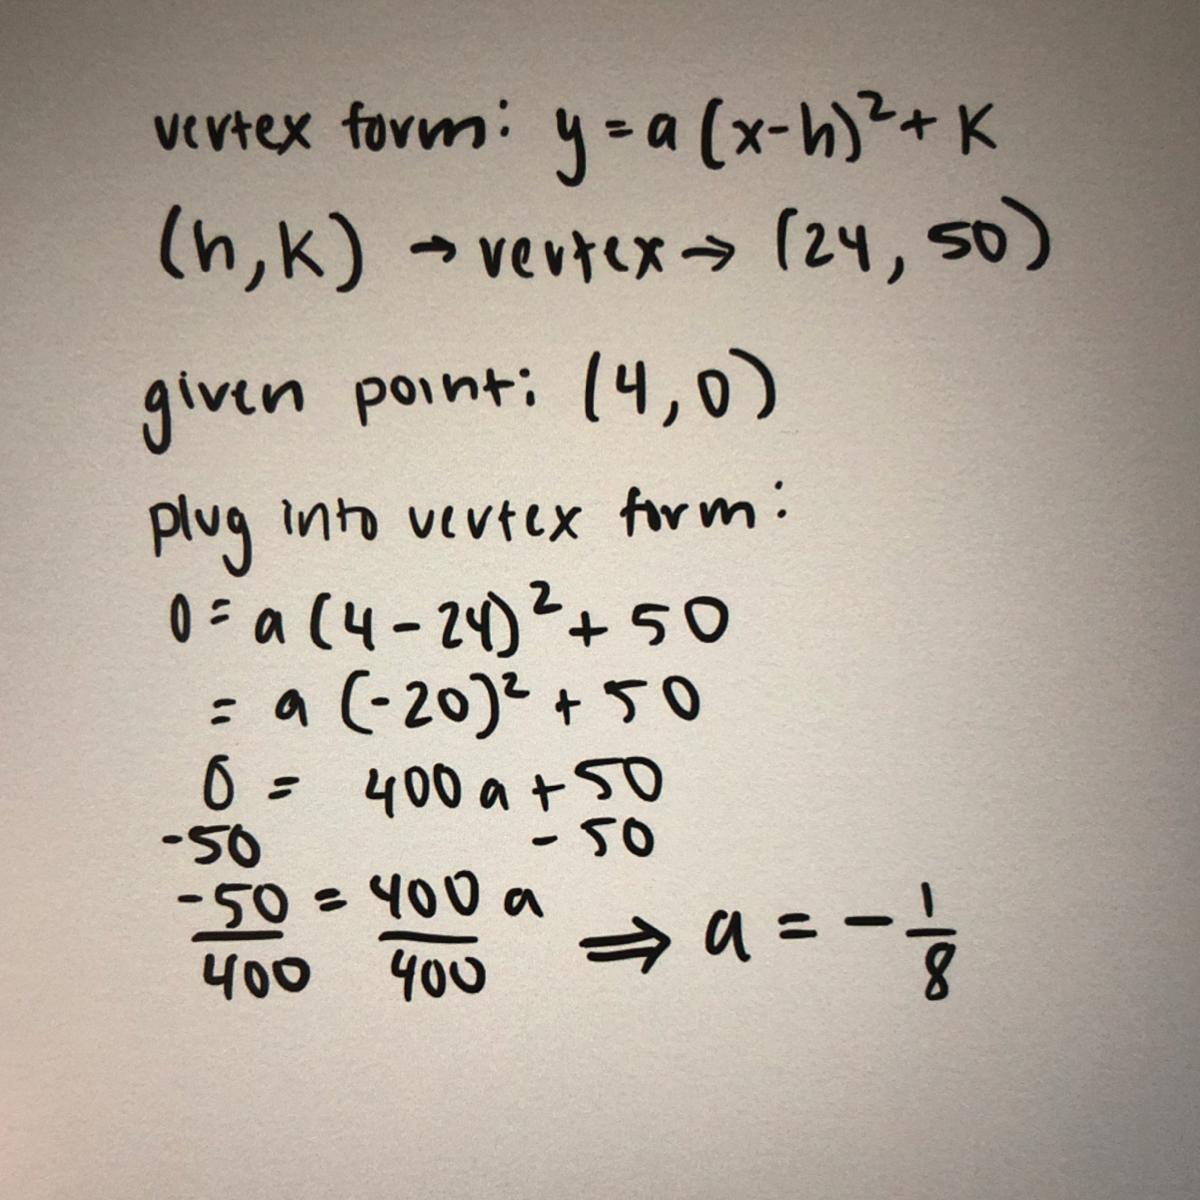 vertex form: y = a (x-h)² + K
(h,K) → vertex → (24, 50)
given point: (4,0)
plug into vertex form:
0 = a (4 - 24)² + 50
= a (-20)² + 50
0 = 400 a + 50
-50 - 50
-50 = 400 a
400 400 ⇒ a = - 1/8